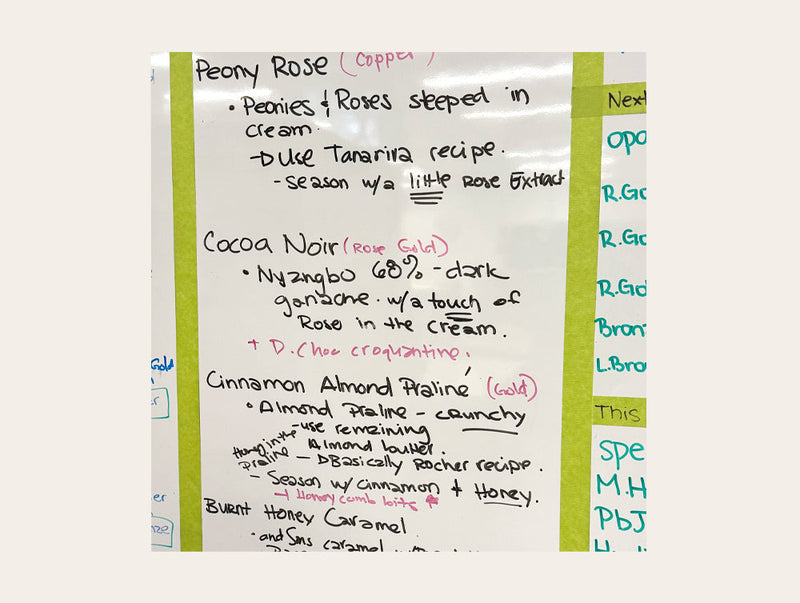 Peony Rose (Copper)
• Peonies & Roses steeped in
cream.
→ Use Tanariva recipe.
- season w/a little Rose Extract
Cocoa Noir (Rose Gold)
• Nyangbo 68% - dark
ganache. w/a touch of
Rose in the cream.
+ D. Choc croquantine.
Cinnamon Almond Praliné (Gold)
• Almond Praline - crunchy
- use remaining
Almond butter.
Honey in the
praline
→ Basically Rocher recipe.
- Season w/ cinnamon + Honey.
→ Honey comb bits
Burnt Honey Caramel
• and Sms caramel
Gold
er
er
ze
Next
opa
R.Go
R.Go
R.Gol
Bron
L.Bro
This
Spe
M.H
PbJ